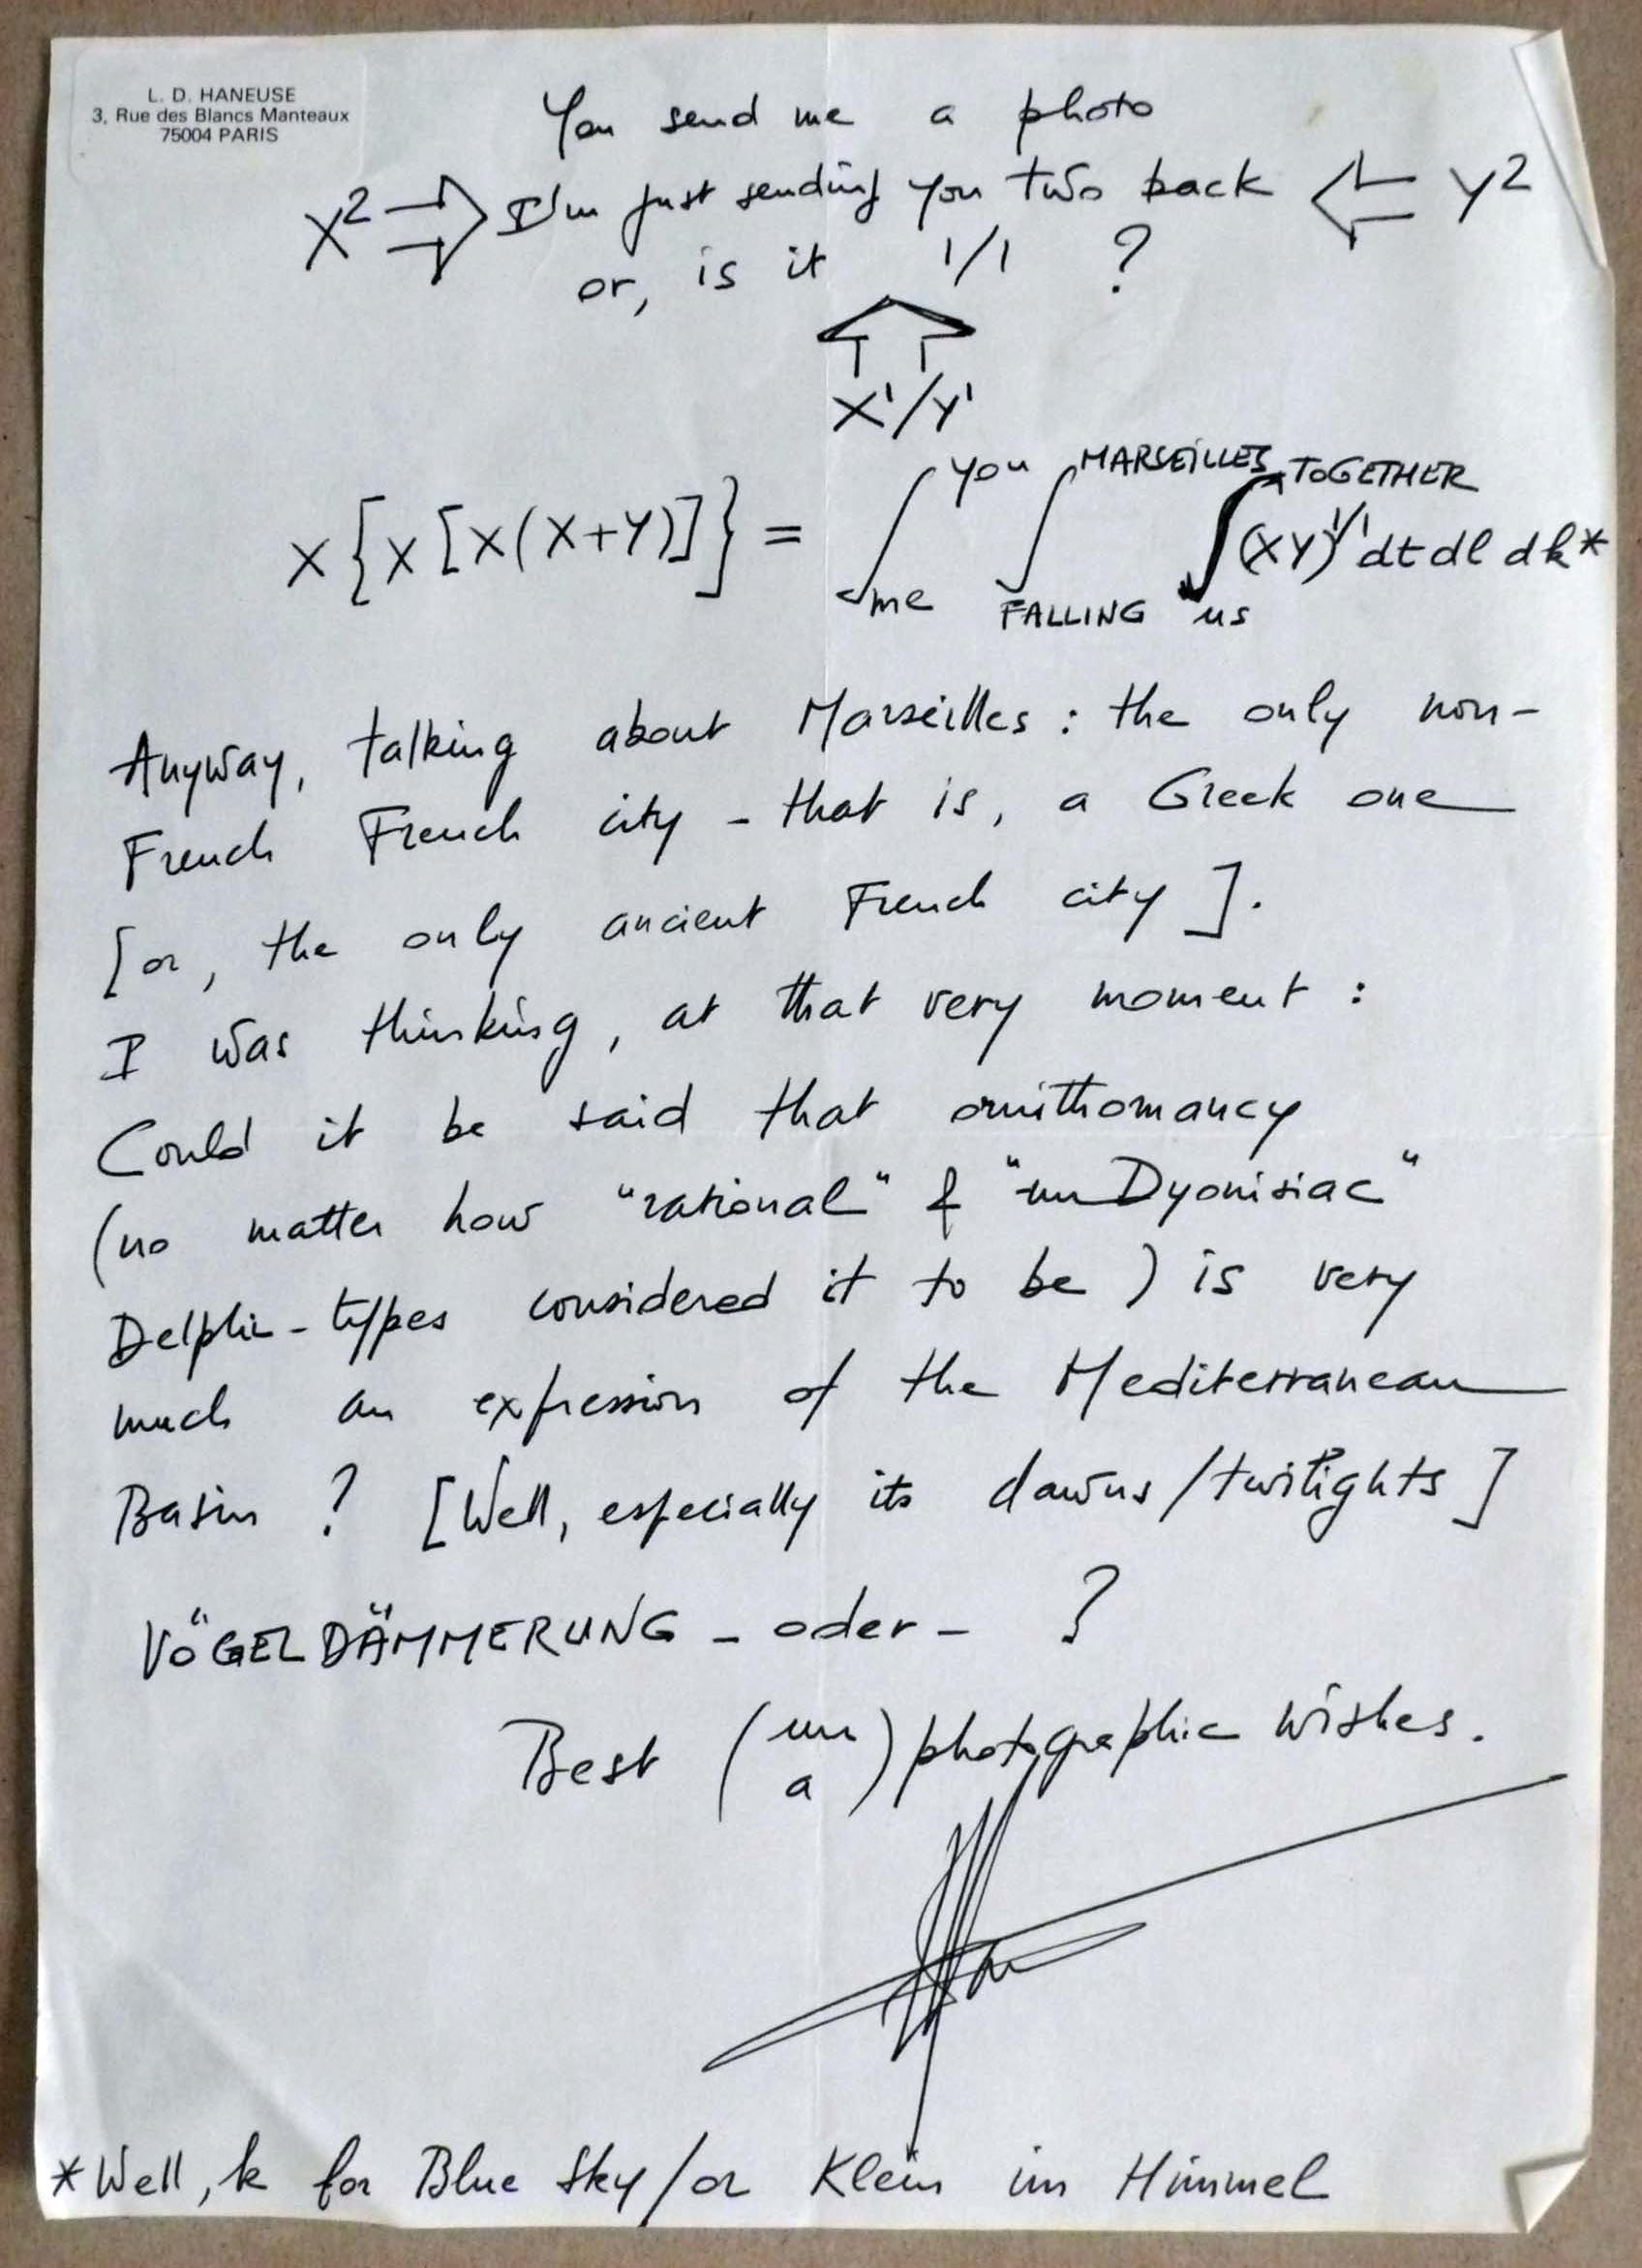 L. D. HANEUSE
3, Rue des Blancs Manteaux
75004 PARIS
You send me a photo
X² ⇒ I'm just sending you two back ⇐ Y²
or, is it 1/1 ?
⇑
X¹/Y¹
YOU MARSEILLES TOGETHER
X{X[X(X+Y)]} = ∫ ∫ ∫ (XY)^1/1 dt dl dk*
me FALLING us
Anyway, talking about Marseilles : the only non-
French French city - that is, a Greek one
[or, the only ancient French city].
I was thinking, at that very moment :
Could it be said that ornithomancy
(no matter how "rational" & "un Dyonisiac"
Delphic-types considered it to be) is very
much an expression of the Mediterranean
Basin ? [Well, especially its dawns/twilights]
VÖGELDÄMMERUNG - oder - ?
Best (un/a) photographic wishes.
*Well, k for Blue Sky/or Klein im Himmel